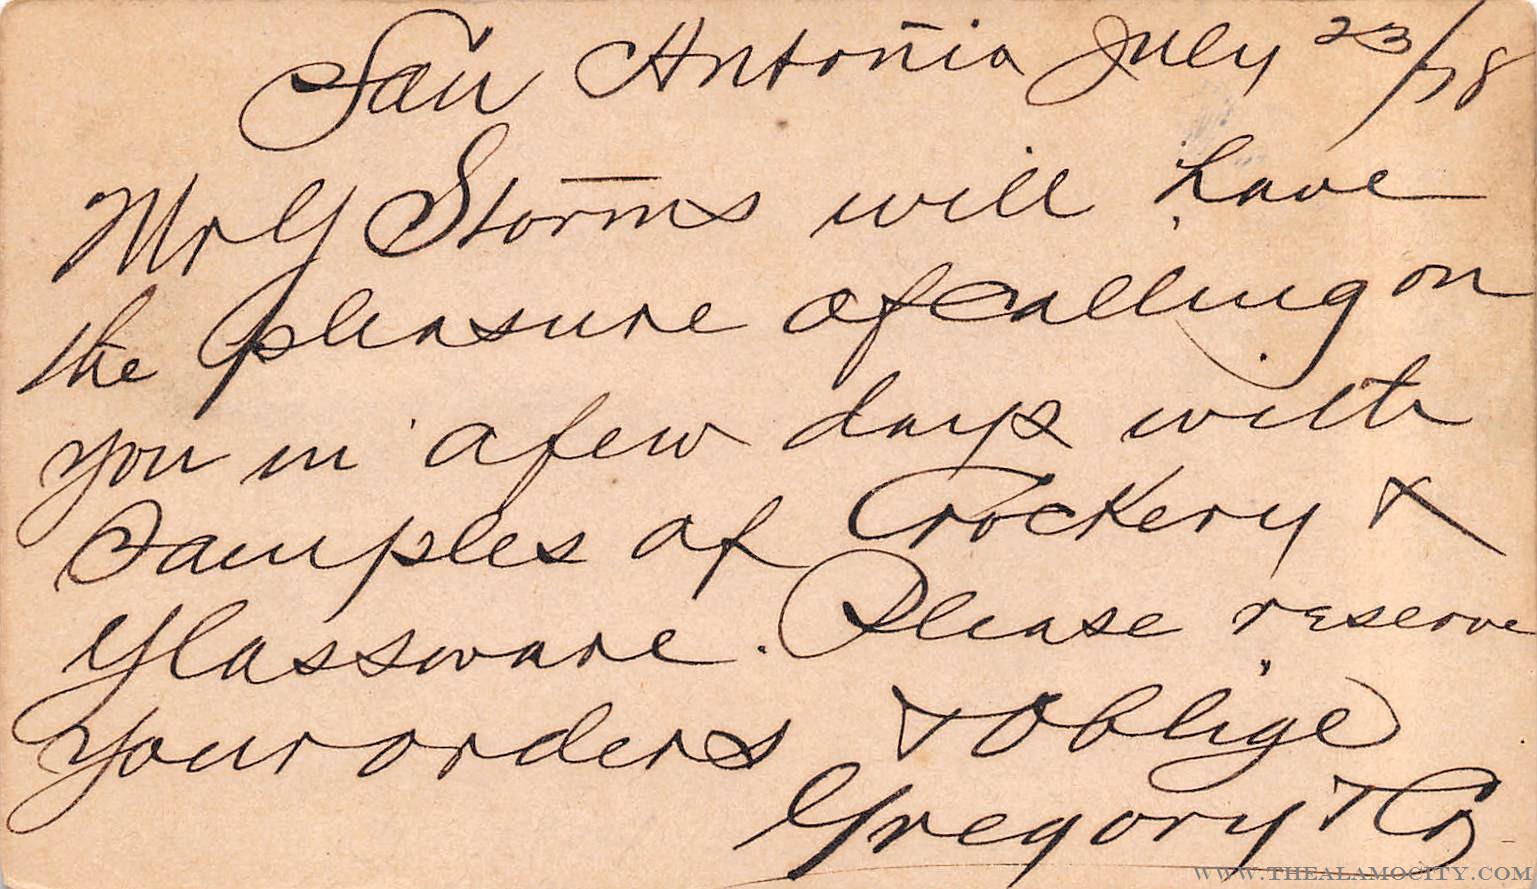 San Antonio July 23/78
Mr G Storms will have
the pleasure of calling on
you in a few days with
Samples of Crockery &
Glassware. Please reserve
your orders & Oblige
Gregory & Co
WWW.THEALAMOCITY.COM